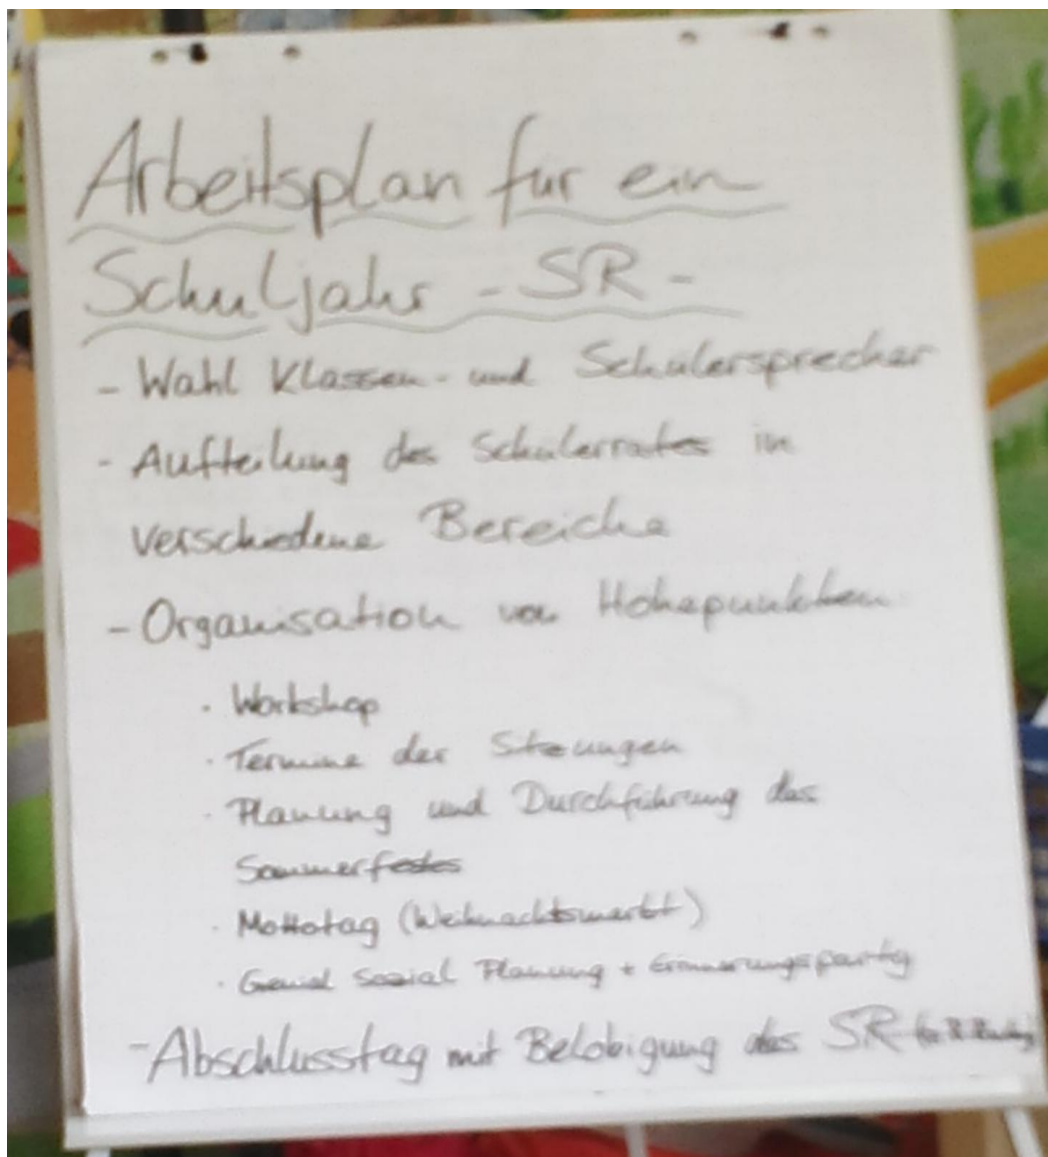 Arbeitsplan für ein
Schuljahr - SR -
- Wahl Klassen- und Schülersprecher
- Aufteilung des Schülerrates in
verschiedene Bereiche
- Organisation von Höhepunkten
· Workshop
· Termine der Sitzungen
· Planung und Durchführung des
Sommerfestes
· Mottotag (Weihnachtsmarkt)
· Genial Sozial Planung + Erinnerungsparty
- Abschlusstag mit Belobigung des SR